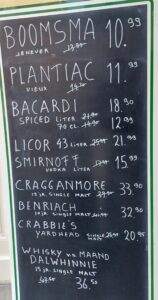 BOOMSMA 10.99
JENEVER
PLANTIAC 11.99
VIEUX
BACARDI 18.90
SPICED LITER
70 CL. 12.99
LICOR 43 LITER 21.99
SMIRNOFF 15.99
VODKA LITER
CRAGGANMORE 33.90
12 JR SINGLE MALT
BENRIACH 32.90
10 JR SINGLE MALT
CRABBIE'S
YARDHEAD SINGLE MALT 20.95
WHISKY VD MAAND
DALWHINNIE
15 JR SINGLE MALT
36.50